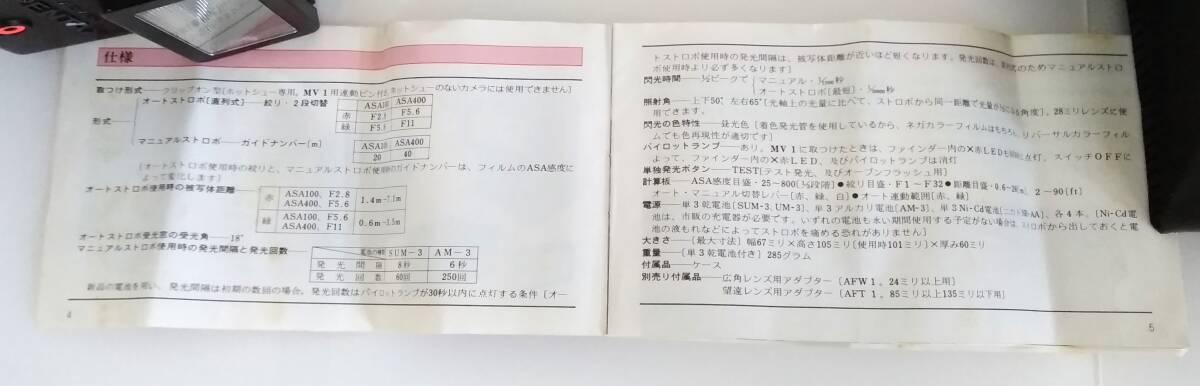 仕様
取つけ形式──クリップオン型[ホットシュー専用。MV1用連動ピン付き。ホットシューのないカメラには使用できません]
オートストロボ[直列式]──絞り・2段切替
ASA100 ASA400
赤 F2.8 F5.6
緑 F5.6 F11
形式
マニュアルストロボ──ガイドナンバー(m)
ASA100 ASA400
20 40
[オートストロボ使用時の絞りと、マニュアルストロボ使用時のガイドナンバーは、フィルムのASA感度に
よって変化します]
オートストロボ使用時の被写体距離
赤 ASA100、F2.8 1.4m〜7.1m
ASA400、F5.6
緑 ASA100、F5.6 0.6m〜3.5m
ASA400、F11
オートストロボ受光窓の受光角──18°
マニュアルストロボ使用時の発光間隔と発光回数
電池の種類 SUM-3 AM-3
発光間隔 8秒 6秒
発光回数 60回 250回
新品の電池を用い、発光間隔は初期の数回の場合。発光回数はパイロットランプが30秒以内に点灯する条件[オー
4
トストロボ使用時の発光間隔は、被写体距離が近いほど短くなります。発光回数は、直列式のためマニュアルストロ
ボ使用時より必ず多くなります]
閃光時間──½ピークで マニュアル・ 秒
オートストロボ[最短]・ 秒
照射角──上下50° 左右65°[光軸上の光量に比べて、ストロボから同一距離で光量が½になる角度]。28ミリレンズに使
用できます。
閃光の色特性──昼光色[着色発光管を使用しているから、ネガカラーフィルムはもちろん、リバーサルカラーフィル
ムでも色再現性が適切です]
パイロットランプ──あり。MV1に取つけたときは、ファインダー内の×赤LEDも同時に点灯。スイッチOFFに
よって、ファインダー内の×赤LED、及びパイロットランプは消灯
単独発光ボタン──TEST[テスト発光、及びオープンフラッシュ用]
計算板──ASA感度目盛・25〜800[⅓段階]●絞り目盛・F1〜F32●距離目盛・0.6〜26(m)、2〜90(ft)
オート・マニュアル切替レバー[赤、緑、白]●オート連動範囲[赤、緑]
電源──単3乾電池[SUM-3、UM-3]、単3アルカリ電池[AM-3]、単3Ni-Cd電池[ニカド球・AA]、各4本。[Ni-Cd電
池は、市販の充電器が必要です。いずれの電池も永い期間使用する予定がない場合は、ストロボから出しておくと電
池の液もれなどによってストロボを痛める恐れがありません]
大きさ──[最大寸法]幅67ミリ×高さ105ミリ[使用時101ミリ]×厚み60ミリ
重量──[単3乾電池付き]285グラム
付属品──ケース
別売り付属品──広角レンズ用アダプター[AFW1。24ミリ以上用]
望遠レンズ用アダプター[AFT1。85ミリ以上135ミリ以下用]
5